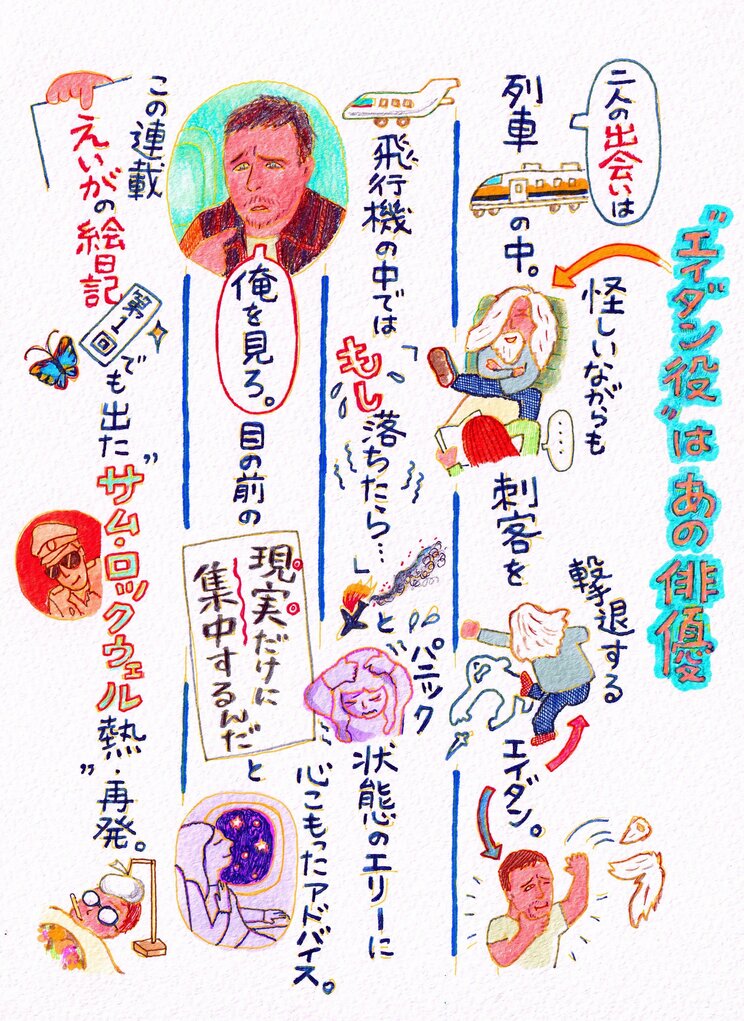 "エイダン役"はあの俳優
二人の出会いは
列車の中。
怪しいながらも
刺客を
撃退する
エイダン。
・・・・
飛行機の中では
「もし落ちたら…」
と"パニック"
状態のエリーに
俺を見ろ。
目の前の
現実だけに
集中するんだ
と
心こもったアドバイス。
この連載
えいがの絵日記
第1回
でも出た
"サム・ロックウェル
熱・再発。"